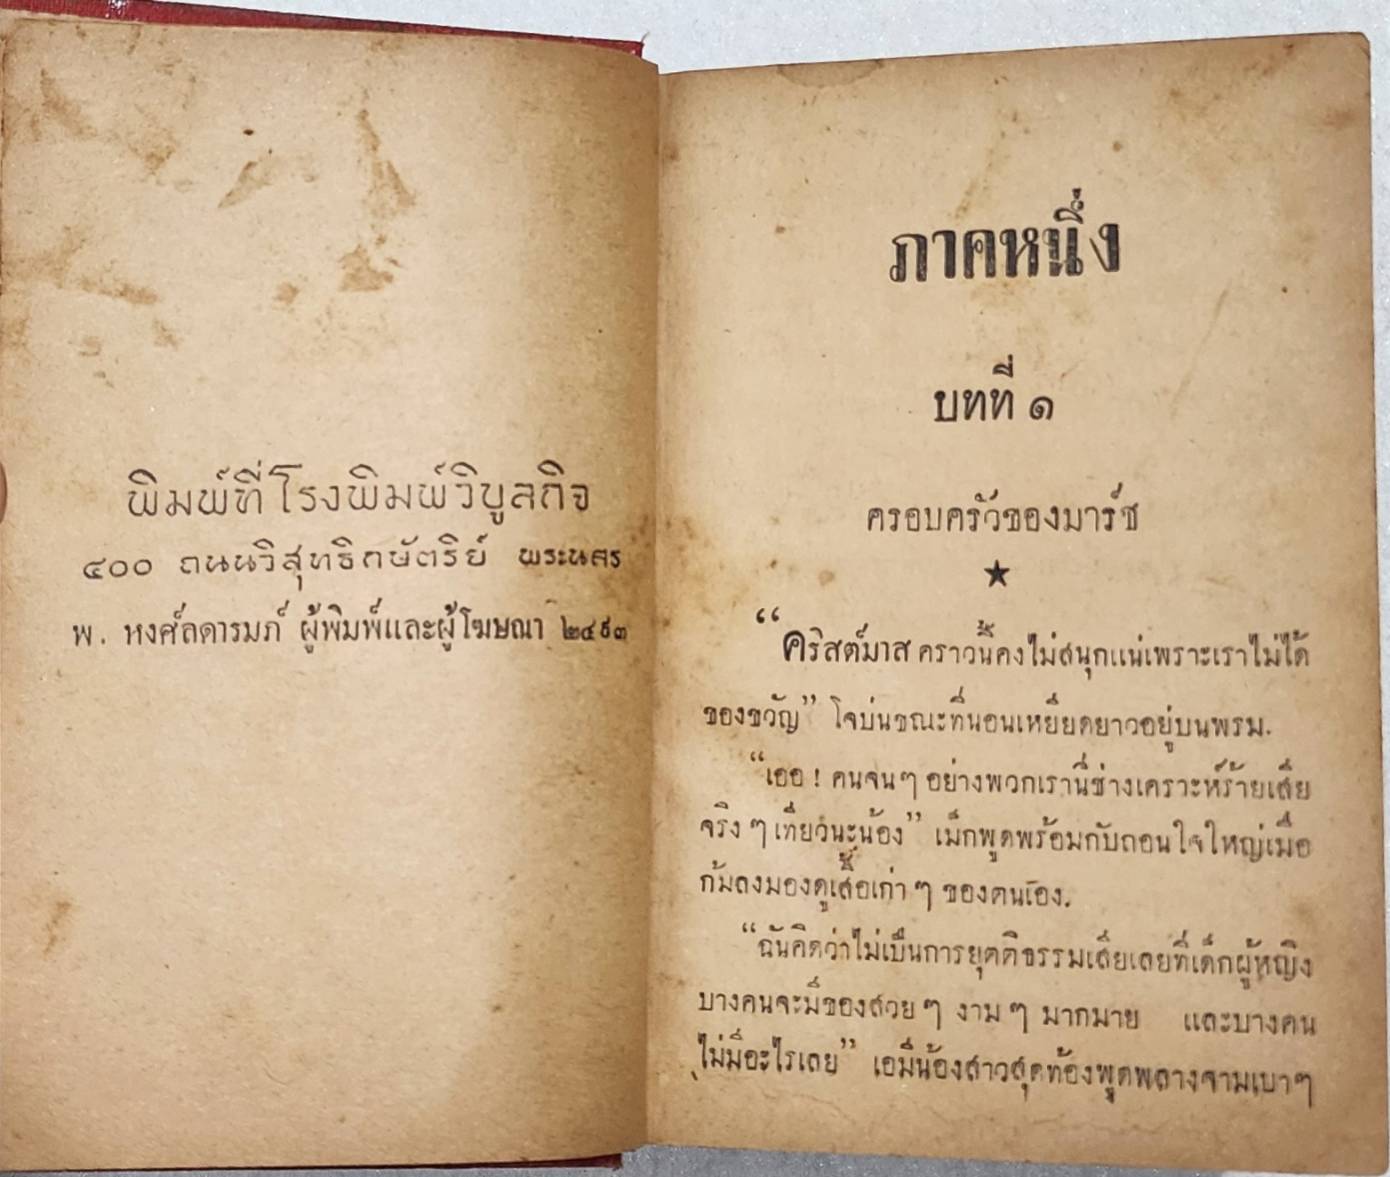 พิมพ์ที่โรงพิมพ์วิบูลกิจ
๔๐๐ ถนนวิสุทธิกษัตริย์ พระนคร
พ. หงศ์ลดารมภ์ ผู้พิมพ์และผู้โฆษณา ๒๔๙๓
ภาคหนึ่ง
บทที่ ๑
ครอบครัวของมาร์ช
★
“คริสต์มาสคราวนี้คงไม่สนุกแน่เพราะเราไม่ได้
ของขวัญ” โจบ่นขณะที่นอนเหยียดยาวอยู่บนพรม.
“เออ ! คนจนๆ อย่างพวกเรานี่ช่างเคราะห์ร้ายเสีย
จริง ๆ เทียวนะน้อง” เม็กพูดพร้อมกับถอนใจใหญ่เมื่อ
ก้มลงมองดูเสื้อเก่า ๆ ของตนเอง.
“ฉันคิดว่าไม่เป็นการยุตติธรรมเสียเลยที่เด็กผู้หญิง
บางคนจะมีของสวย ๆ งาม ๆ มากมาย และบางคน
ไม่มีอะไรเลย” เอมีน้องสาวสุดท้องพูดพลางจามเบาๆ